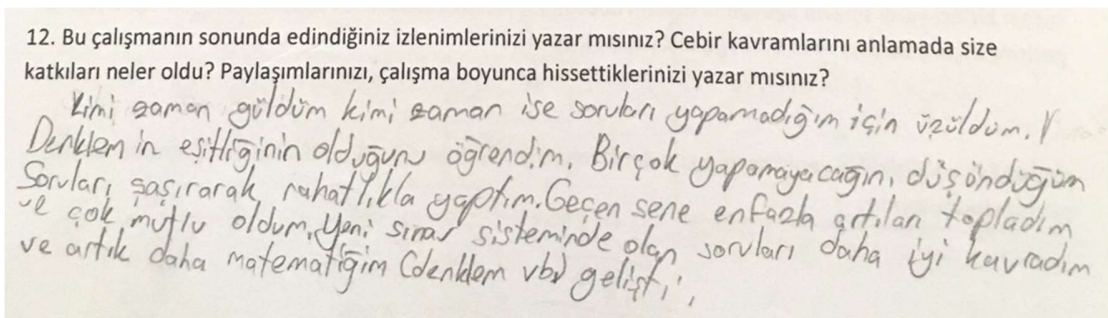 12. Bu çalışmanın sonunda edindiğiniz izlenimlerinizi yazar mısınız? Cebir kavramlarını anlamada size
katkıları neler oldu? Paylaşımlarınızı, çalışma boyunca hissettiklerinizi yazar mısınız?
Kimi zaman güldüm kimi zaman ise soruları yapamadığım için üzüldüm.
Denklemin eşitliğinin olduğunu öğrendim. Birçok yapamayacağını düşündüğüm
Soruları şaşırarak rahatlıkla yaptım. Geçen sene enfazla artıları topladım
ve çok mutlu oldum. Yeni sınav sisteminde olan soruları daha iyi kavradım
ve artık daha matematiğim (denklem vb) gelişti